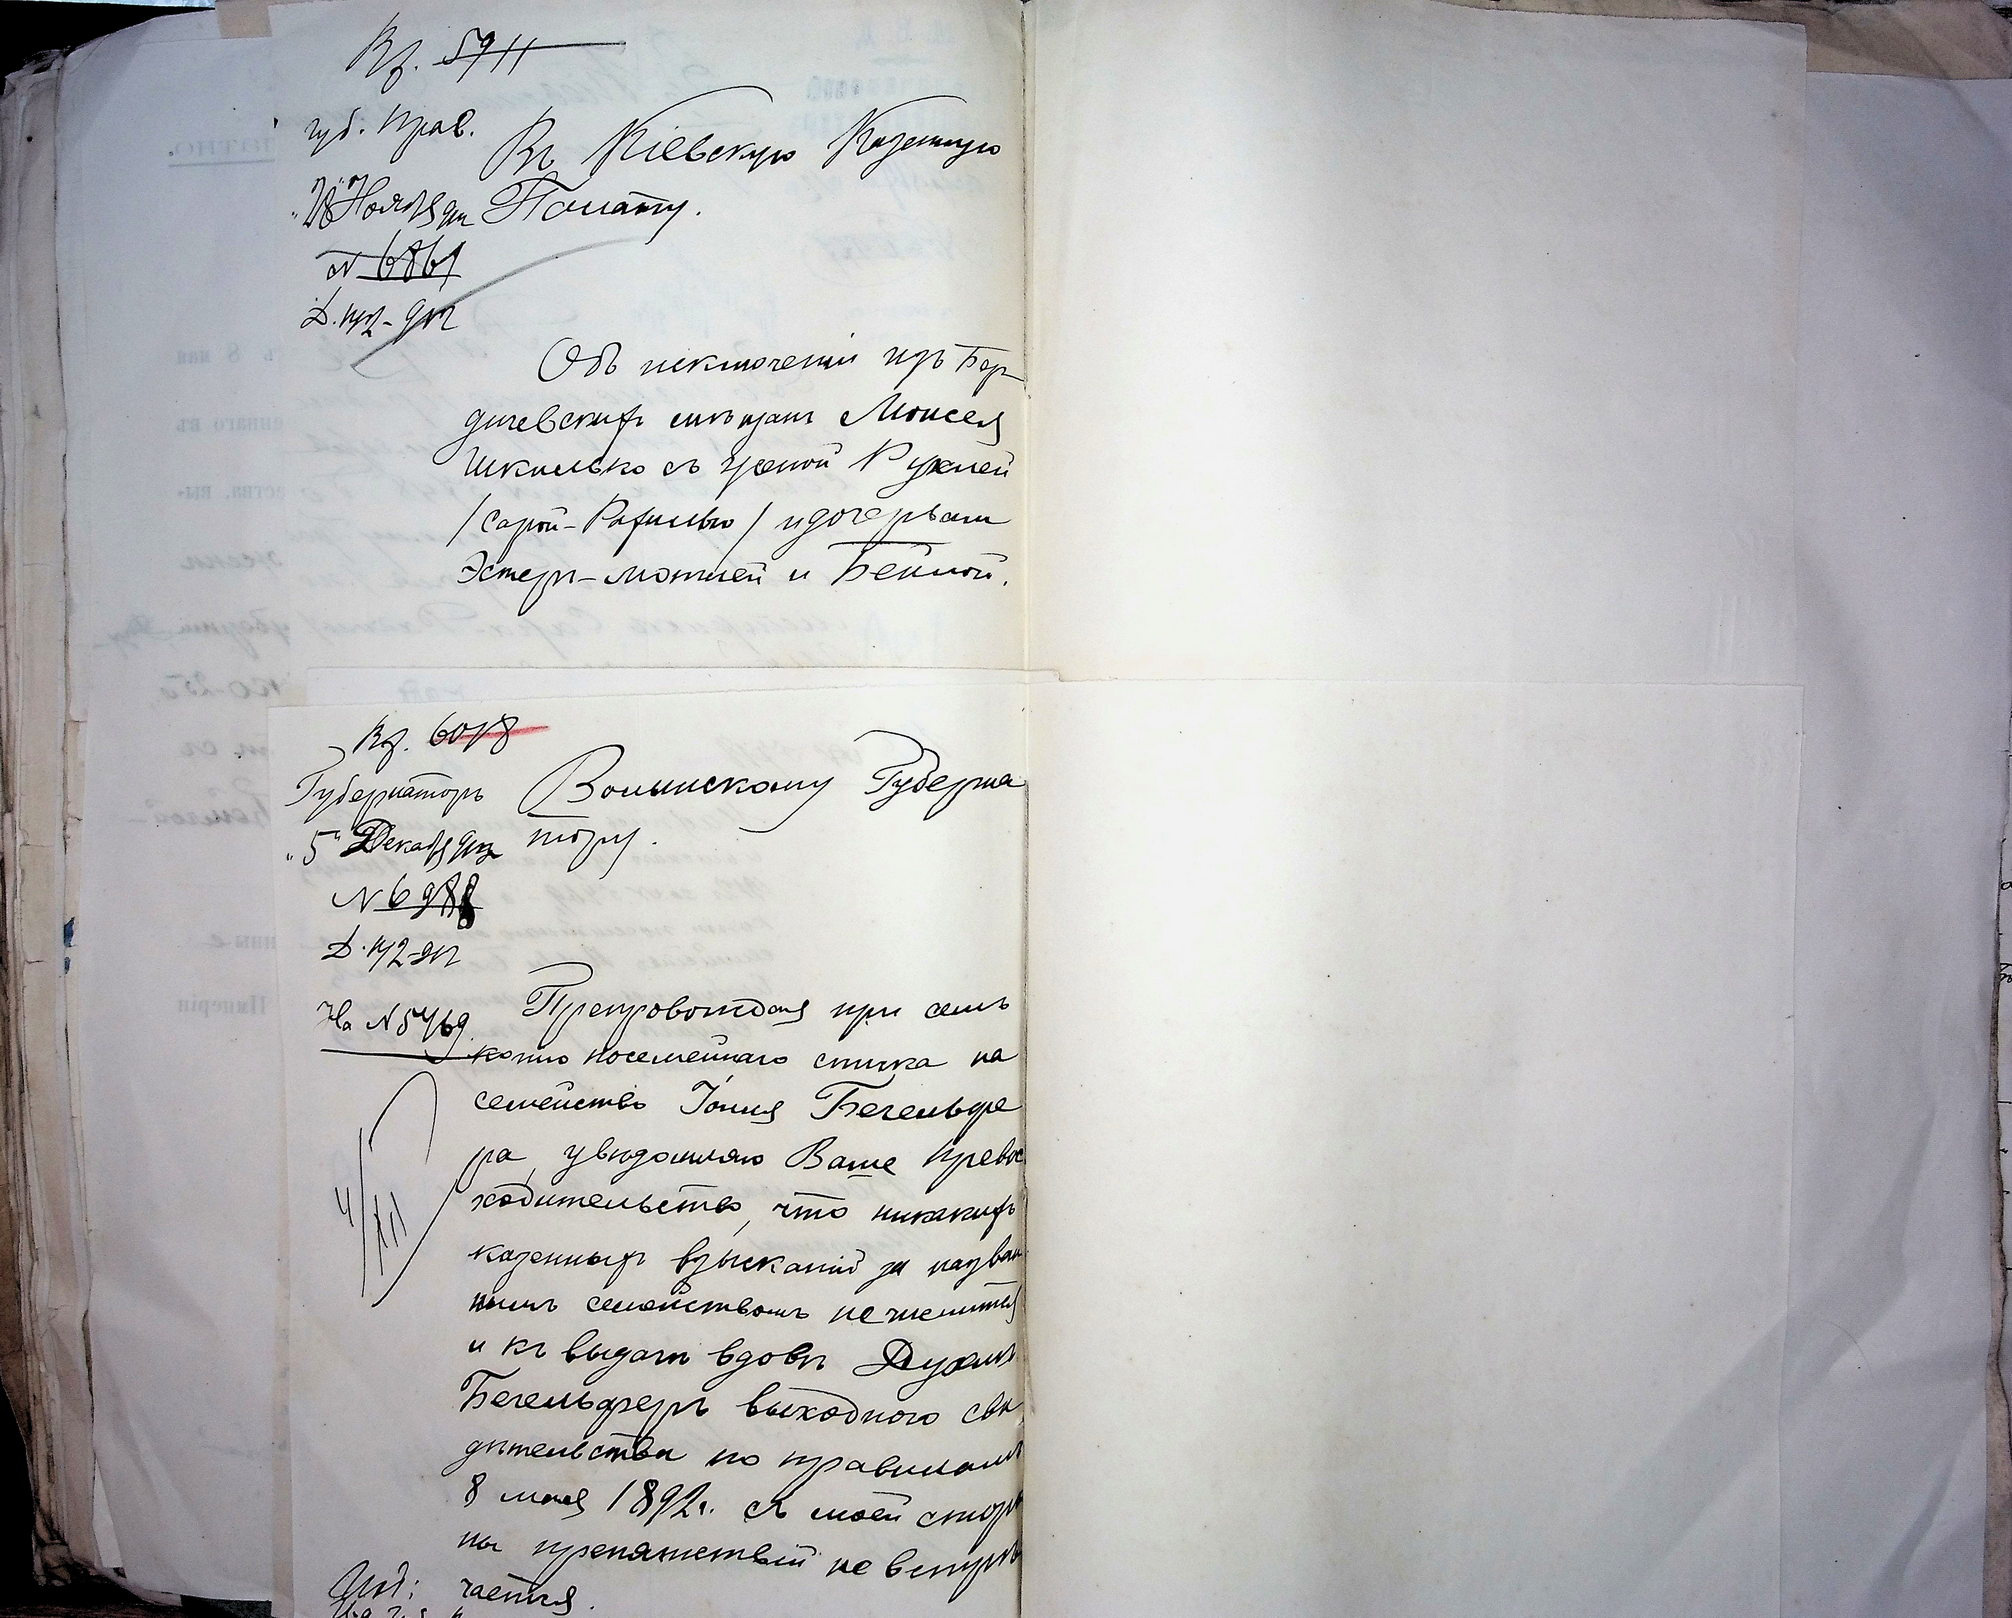 Вх. 5911
губ. Прав.
Въ Кіевскую Казенную
"28" Ноября
Палату.
№ 6861
Объ исключеніи изъ Бер-
дичевскихъ мѣщанъ Моисея
Шкилько съ женой Рухлей
/Сарой-Рахилью/ и дочерьми
Эстеръ-Мотлей и Бейлой.
Вх. 6018
Губернаторъ
Волынскому Губерна
"5" Декабря
тору.
№ 698
На № 5769.
Препровождая при семъ
копію посемейнаго списка на
семейство Іоиля Бегельфе
ра, увѣдомляю Ваше Превос
ходительство, что никакихъ
казенныхъ взысканій за назван
нымъ семействомъ не числится
и къ выдачѣ вдовѣ
Бегельферъ выходного сви
дѣтельства по правиламъ
8 мая 1892 г. съ моей сторо
ны препятствій не встрѣ
чается.